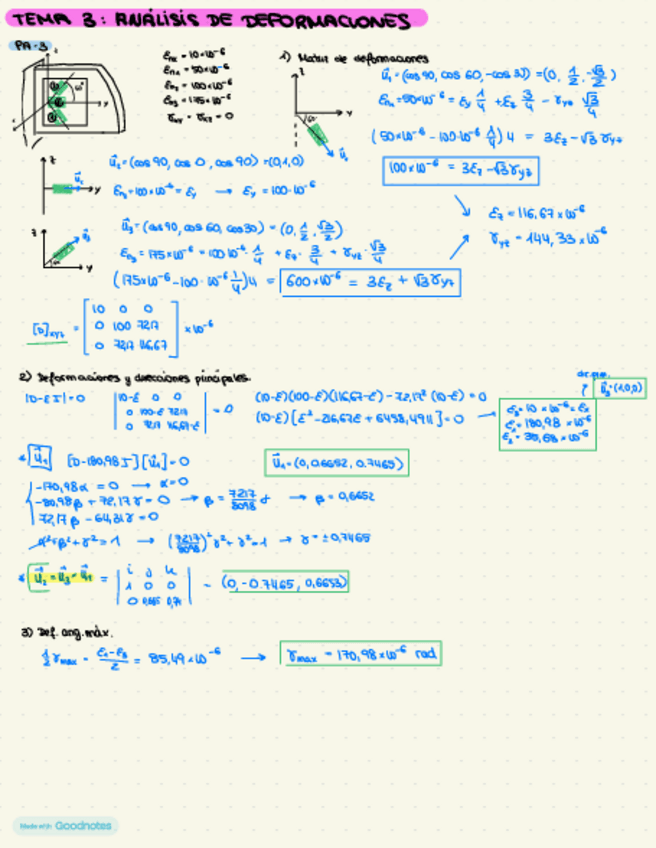 TEMA 3: ANÁLISIS DE DEFORMACIONES
PA-3
εnx = 10×10⁻⁶
εn1 = 50×10⁻⁶
εn2 = 100×10⁻⁶
εn3 = 175×10⁻⁶
γxy = γxz = 0
1) Matriz de deformaciones
u⃗₁ = (cos 90, cos 60, -cos 30) = (0, 1/2, -√3/2)
εn1 = 50×10⁻⁶ = εy 1/4 + εz 3/4 - γyz √3/4
(50×10⁻⁶ - 100·10⁻⁶ 1/4) 4 = 3εz - √3 γyz
100×10⁻⁶ = 3εz - √3 γyz
u⃗₂ = (cos 90, cos 0, cos 90) = (0,1,0)
εn2 = 100×10⁻⁶ = εy → εy = 100·10⁻⁶
u⃗₃ = (cos 90, cos 60, cos 30) = (0, 1/2, √3/2)
εn3 = 175×10⁻⁶ = 100·10⁻⁶ · 1/4 + εz · 3/4 + γyz · √3/4
(175×10⁻⁶ - 100·10⁻⁶ 1/4) 4 = 600×10⁻⁶ = 3εz + √3 γyz
εz = 116,67×10⁻⁶
γyz = 144,33×10⁻⁶
[D]xyz = [10 0 0
0 100 72,17
0 72,17 116,67] ×10⁻⁶
2) Deformaciones y direcciones principales.
|D-εI| = 0
|10-ε 0 0
0 100-ε 72,17
0 72,17 116,67-ε| = 0
(10-ε)(100-ε)(116,67-ε) - 72,17² (10-ε) = 0
(10-ε)[ε² - 216,67ε + 6458,4911] = 0
u⃗₃ = (1,0,0)
ε₃ = 10×10⁻⁶ = εx
ε₁ = 180,98×10⁻⁶
ε₂ = 35,68×10⁻⁶
u⃗₁
[D-180,98 I][u⃗₁] = 0
u⃗₁ = (0, 0,6652, 0,7465)
-170,98α = 0 → α = 0
-80,98β + 72,17γ = 0 → β = 72,17/80,98 γ → β = 0,6652
72,17β - 64,31γ = 0
α² + β² + γ² = 1 → (72,17/80,98)² γ² + γ² = 1 → γ = ±0,7465
u⃗₂ = u⃗₃ × u⃗₁ = |i j k
1 0 0
0 0,665 0,74| = (0, -0.7465, 0,6653)
3) Def. ang. máx.
1/2 γmax = (ε₁-ε₃)/2 = 85,49×10⁻⁶ → γmax = 170,98×10⁻⁶ rad
Made with Goodnotes